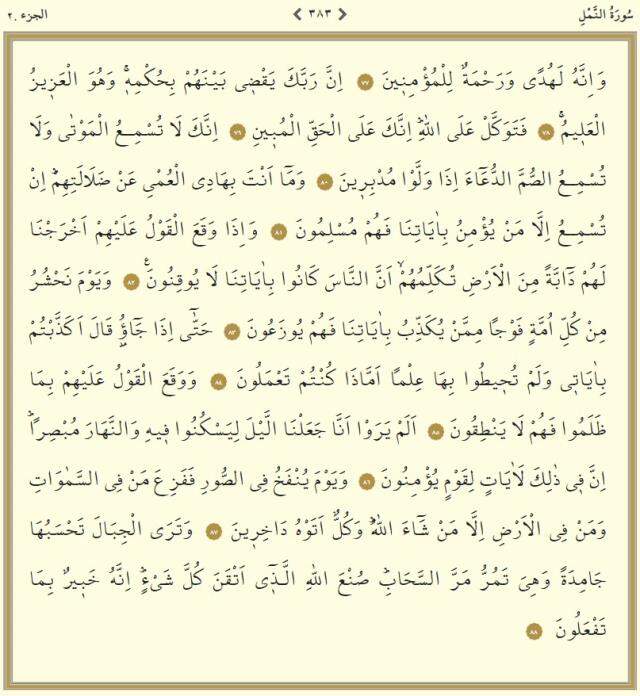 سُورَةُ النَّمْلِ ٣٨٣ الجزء ٢٠
وَاِنَّهُ لَهُدًى وَرَحْمَةٌ لِلْمُؤْمِنٖينَ ﴿٧٧﴾ اِنَّ رَبَّكَ يَقْضٖى بَيْنَهُمْ بِحُكْمِهٖۚ وَهُوَ الْعَزٖيزُ
الْعَلٖيمُۚ ﴿٧٨﴾ فَتَوَكَّلْ عَلَى اللّٰهِؕ اِنَّكَ عَلَى الْحَقِّ الْمُبٖينِ ﴿٧٩﴾ اِنَّكَ لَا تُسْمِعُ الْمَوْتٰى وَلَا
تُسْمِعُ الصُّمَّ الدُّعَٓاءَ اِذَا وَلَّوْا مُدْبِرٖينَ ﴿٨٠﴾ وَمَٓا اَنْتَ بِهَادِى الْعُمْىِ عَنْ ضَلَالَتِهِمْؕ اِنْ
تُسْمِعُ اِلَّا مَنْ يُؤْمِنُ بِاٰيَاتِنَا فَهُمْ مُسْلِمُونَ ﴿٨١﴾ وَاِذَا وَقَعَ الْقَوْلُ عَلَيْهِمْ اَخْرَجْنَا
لَهُمْ دَٓابَّةً مِنَ الْاَرْضِ تُكَلِّمُهُمْۙ اَنَّ النَّاسَ كَانُوا بِاٰيَاتِنَا لَا يُوقِنُونَۚ ﴿٨٢﴾ وَيَوْمَ نَحْشُرُ
مِنْ كُلِّ اُمَّةٍ فَوْجًا مِمَّنْ يُكَذِّبُ بِاٰيَاتِنَا فَهُمْ يُوزَعُونَ ﴿٨٣﴾ حَتّٰٓى اِذَا جَٓاؤُ قَالَ اَكَذَّبْتُمْ
بِاٰيَاتٖى وَلَمْ تُحٖيطُوا بِهَا عِلْمًا اَمَّاذَا كُنْتُمْ تَعْمَلُونَ ﴿٨٤﴾ وَوَقَعَ الْقَوْلُ عَلَيْهِمْ بِمَا
ظَلَمُوا فَهُمْ لَا يَنْطِقُونَ ﴿٨٥﴾ اَلَمْ يَرَوْا اَنَّا جَعَلْنَا الَّيْلَ لِيَسْكُنُوا فٖيهِ وَالنَّهَارَ مُبْصِرًاؕ
اِنَّ فٖى ذٰلِكَ لَاٰيَاتٍ لِقَوْمٍ يُؤْمِنُونَ ﴿٨٦﴾ وَيَوْمَ يُنْفَخُ فِى الصُّورِ فَفَزِعَ مَنْ فِى السَّمٰوَاتِ
وَمَنْ فِى الْاَرْضِ اِلَّا مَنْ شَٓاءَ اللّٰهُؕ وَكُلٌّ اَتَوْهُ دَاخِرٖينَ ﴿٨٧﴾ وَتَرَى الْجِبَالَ تَحْسَبُهَا
جَامِدَةً وَهِىَ تَمُرُّ مَرَّ السَّحَابِؕ صُنْعَ اللّٰهِ الَّذٖٓى اَتْقَنَ كُلَّ شَىْءٍؕ اِنَّهُ خَبٖيرٌ بِمَا
تَفْعَلُونَ ﴿٨٨﴾